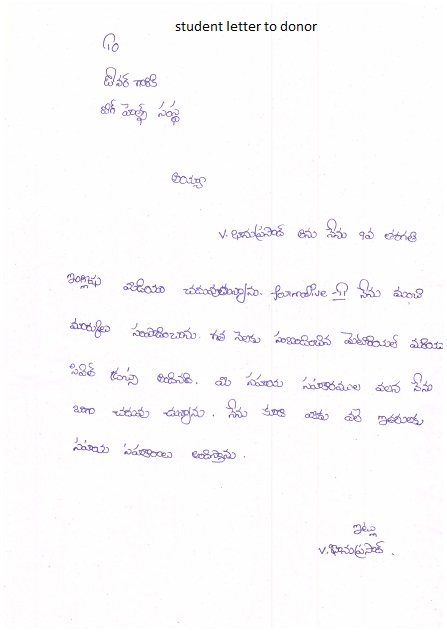 student letter to donor
To
డోనర్ గారికి
బిగ్ హెల్ప్ సంస్థ
అయ్యా
V. భానుప్రసాద్ అను నేను 9వ తరగతి
ఇంగ్లిషు మీడియం చదువుతున్నాను. formative III నేను మంచి
మార్కులు సంపాదించాను. గత నెలకు సంబంధించిన మెటీరియల్ మరియు
సివిల్ డ్రస్సు అందినది. మీ సహాయ సహకారముల వలన నేను
బాగా చదువు చున్నాను. నేను కూడా మీకు వలె ఇతరులకు
సహాయ సహకారాలు అందిస్తాను.
ఇట్లు
V. భానుప్రసాద్.